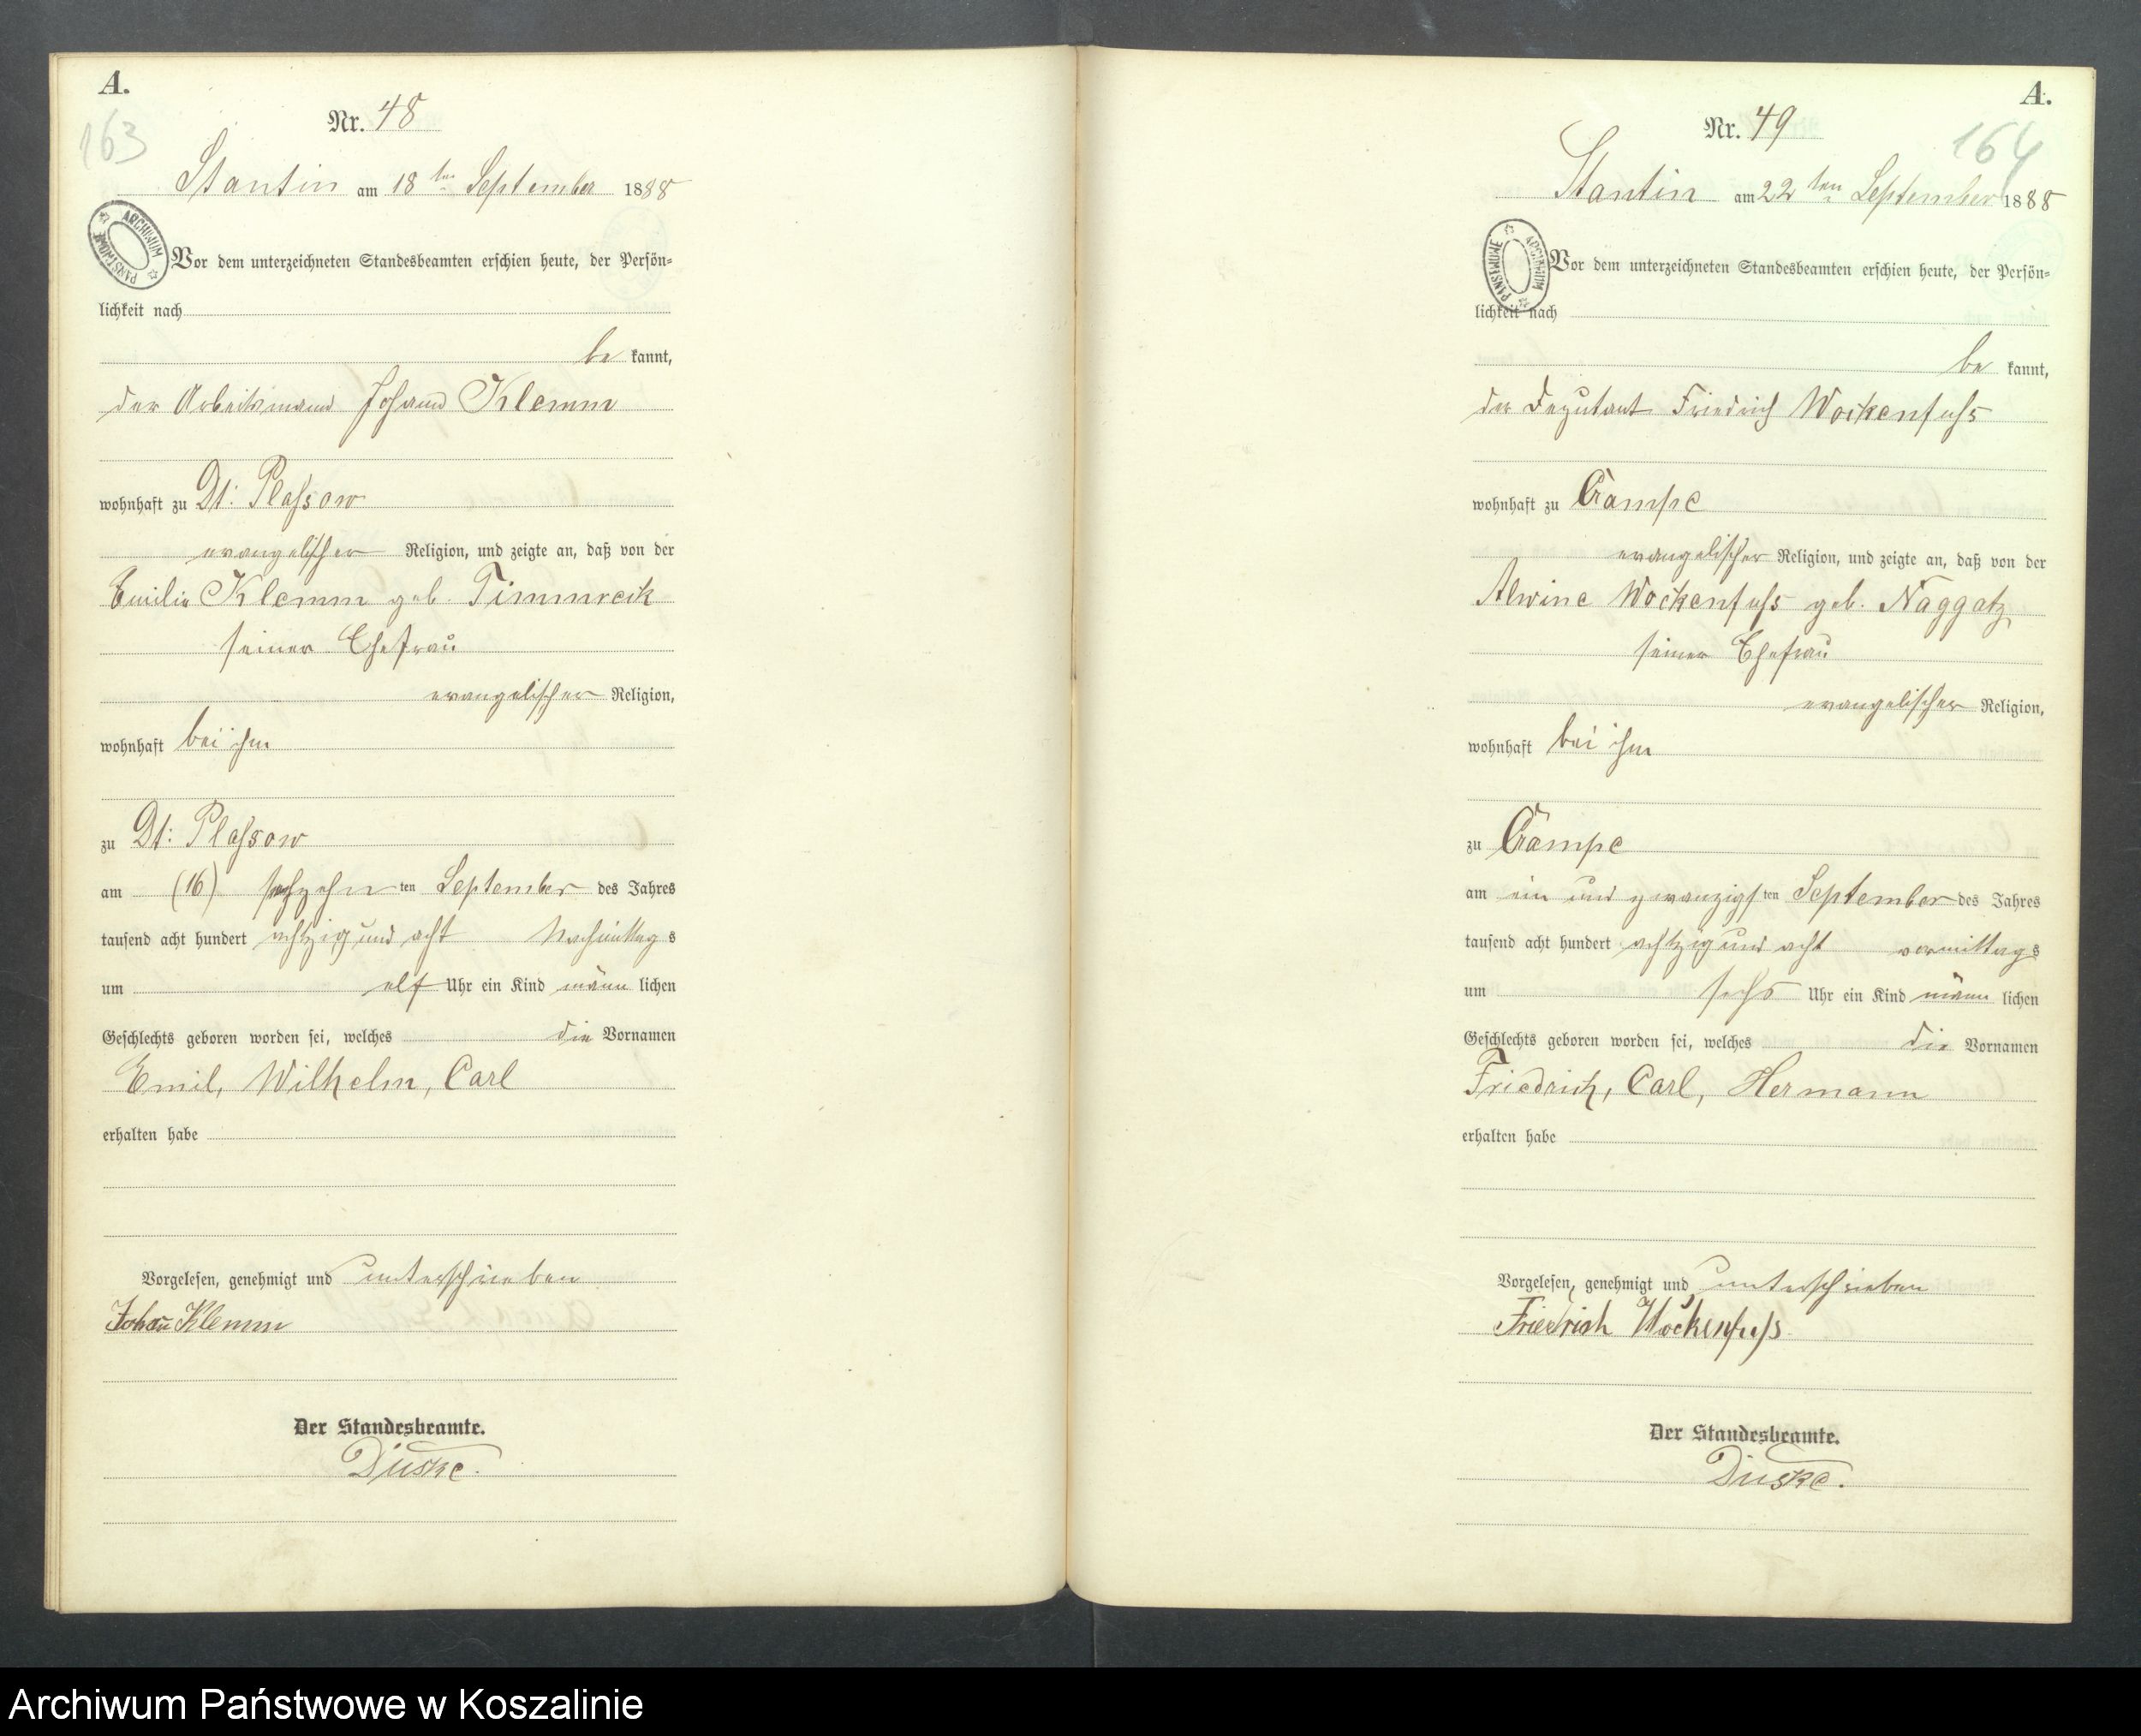 A.
163
Nr. 48
Stantin am 18 ten September 1888
ARCHIWUM PAŃSTWOWE
Vor dem unterzeichneten Standesbeamten erschien heute, der Persön=
lichkeit nach
be kannt,
der Arbeitsmann Johann Klemm
wohnhaft zu Dt: Plassow
evangelischer Religion, und zeigte an, daß von der
Emilie Klemm geb. Timmreck
seiner Ehefrau
evangelischer Religion,
wohnhaft bei ihm
zu Dt: Plassow
am (16) sechzehn ten September des Jahres
tausend acht hundert achtzig und acht Nachmittag s
um elf Uhr ein Kind männ lichen
Geschlechts geboren worden sei, welches die Vornamen
Emil, Wilhelm, Carl
erhalten habe
Vorgelesen, genehmigt und unterschrieben
Johañ Klemm
Der Standesbeamte.
Düske.
A.
164
Nr. 49
Stantin am 22 ten September 1888
ARCHIWUM PAŃSTWOWE
Vor dem unterzeichneten Standesbeamten erschien heute, der Persön=
lichkeit nach
be kannt,
der Deputant Friedrich Wockenfuss
wohnhaft zu Crampe
evangelischer Religion, und zeigte an, daß von der
Alwine Wockenfuss geb. Naggatz
seiner Ehefrau
evangelischer Religion,
wohnhaft bei ihm
zu Crampe
am ein und zwanzigs ten September des Jahres
tausend acht hundert achtzig und acht vormittag s
um sechs Uhr ein Kind männ lichen
Geschlechts geboren worden sei, welches die Vornamen
Friedrich, Carl, Hermann
erhalten habe
Vorgelesen, genehmigt und unterschrieben
Friedrich Wockenfuss
Der Standesbeamte.
Düske.
Archiwum Państwowe w Koszalinie